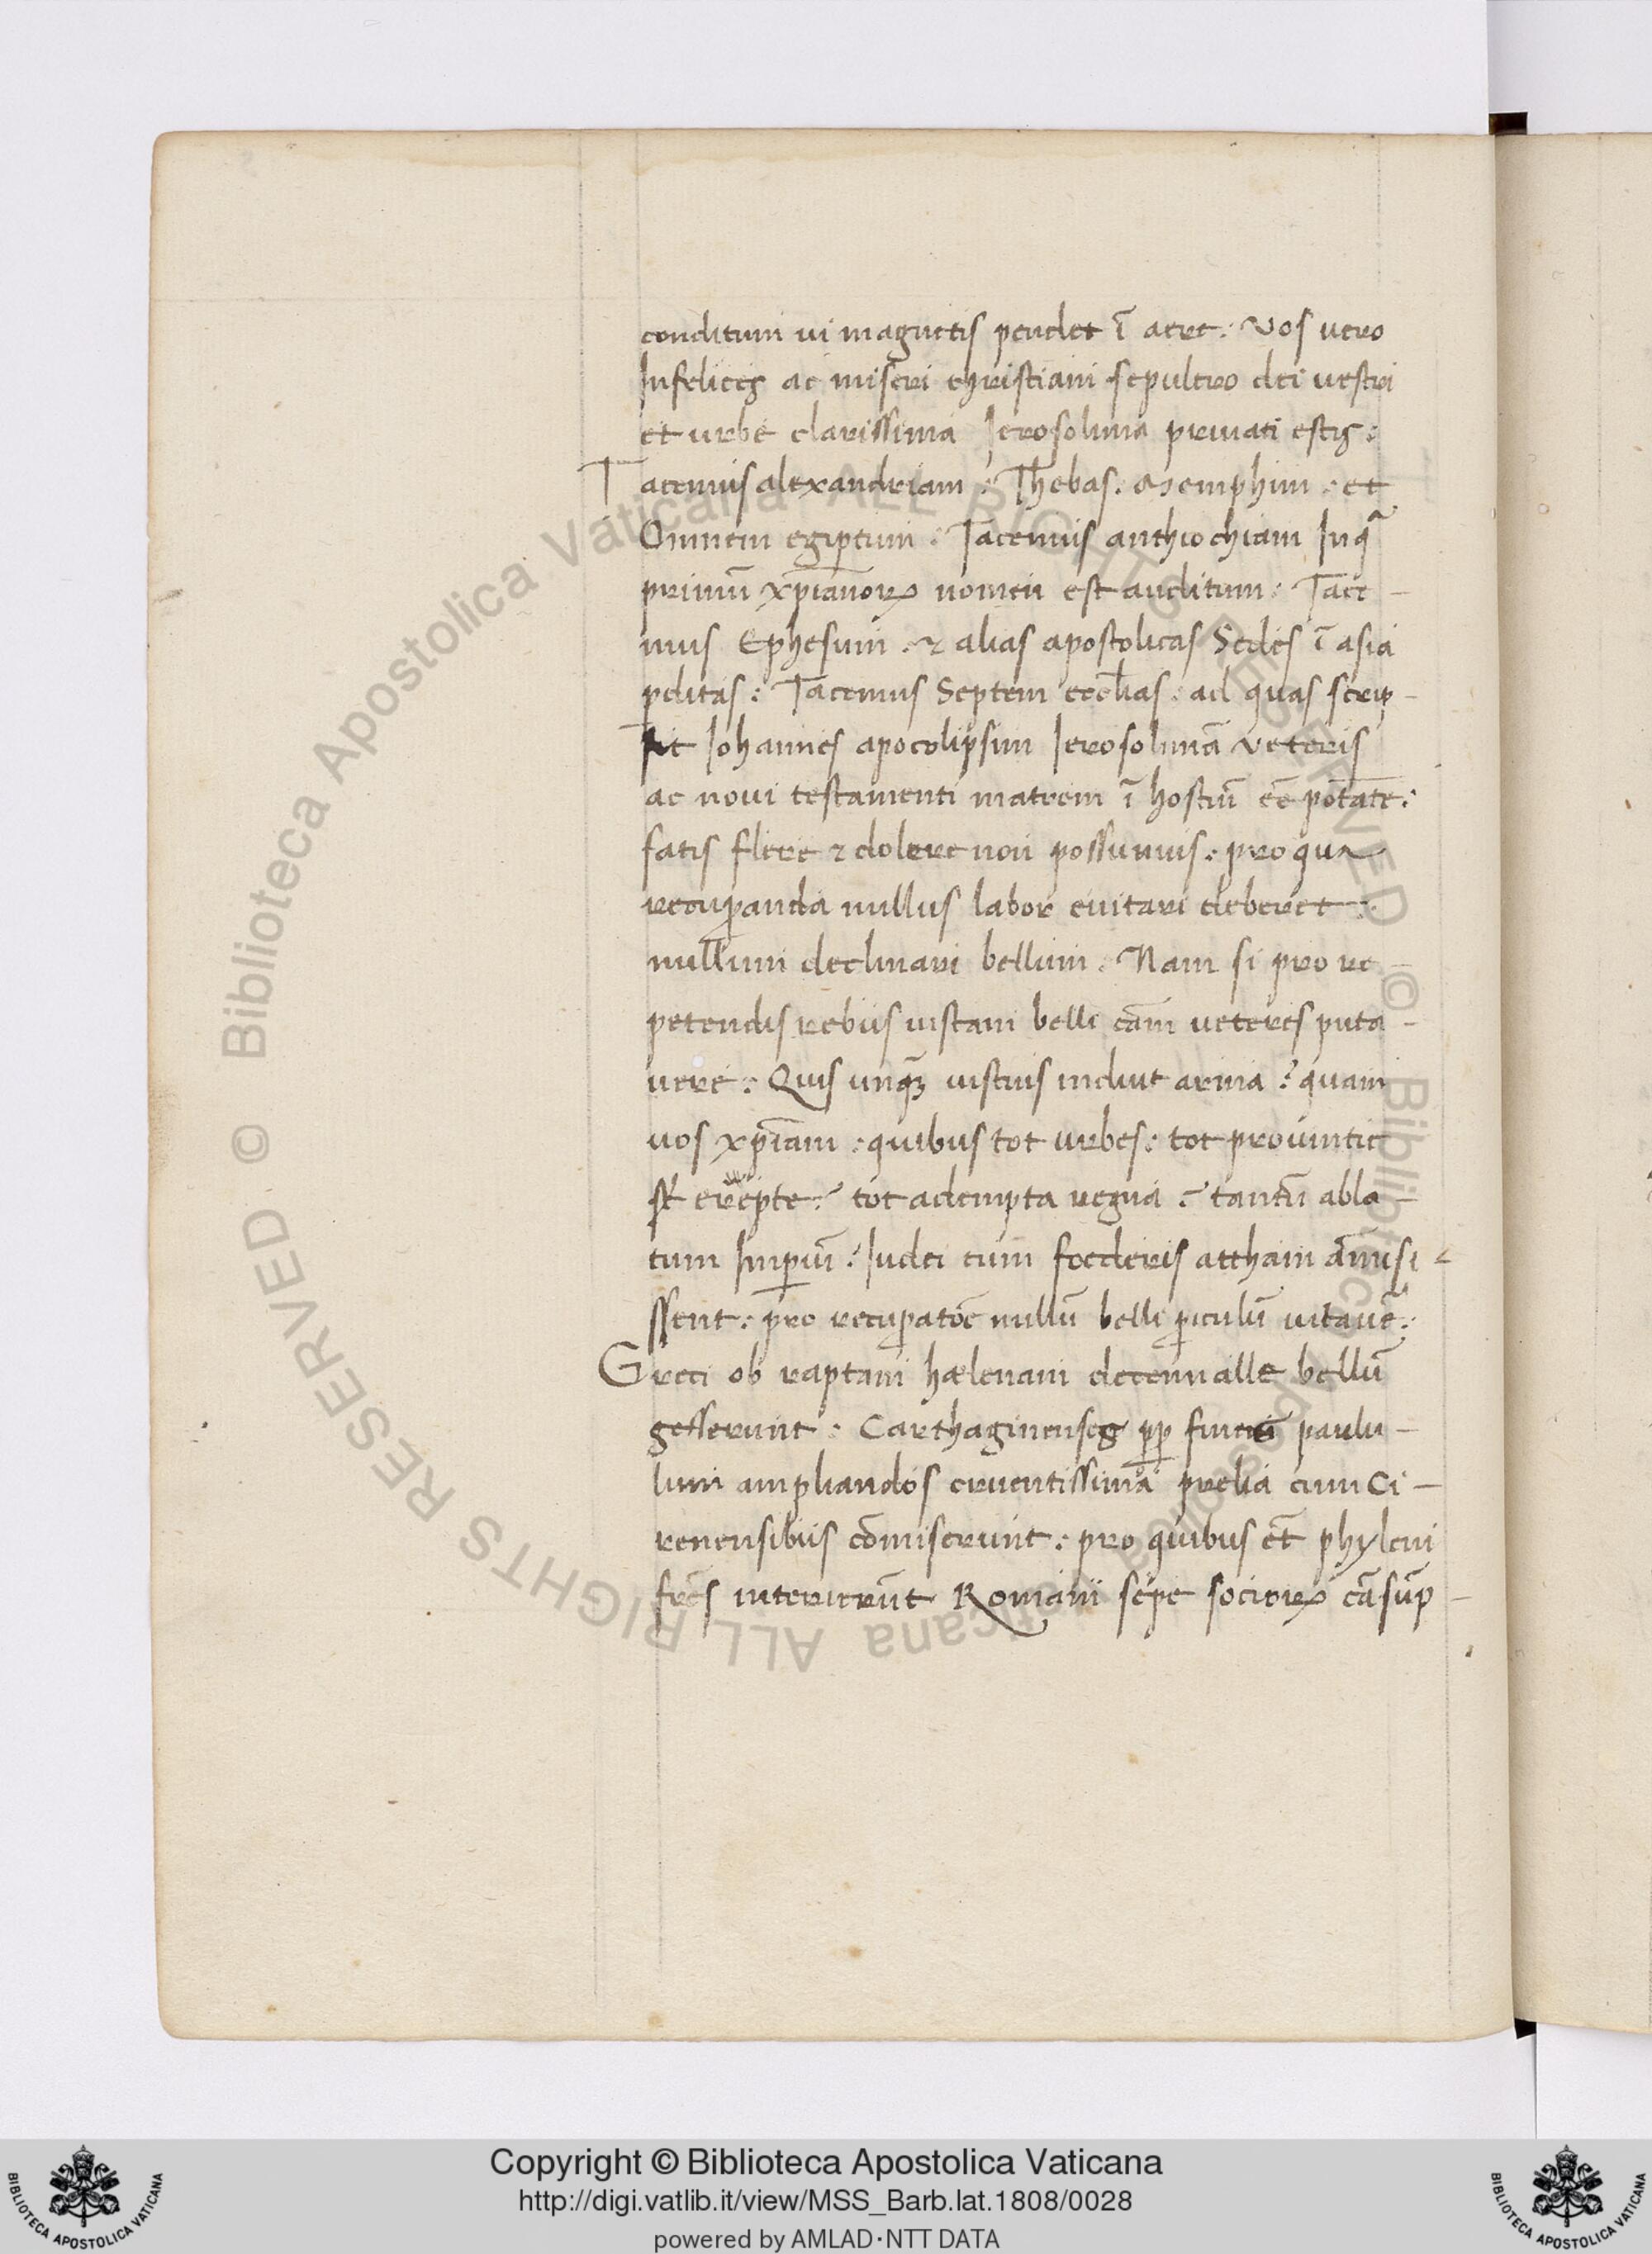 conditum ui magnetis pendet ī aere: Vos uero
Infelices ac miseri christiani sepulcro dei uestri
et urbe clarissima Ierosolima priuati estis:
Tacemus alexandriam: Thebas: Memphim: et
Omnem egiptum: Tacemus anthiochiam Inq̄
primū xp̄ianoꝝ nomen est auditum: Tace-
mus Ephesum: ⁊ alias apostolicas Sedes ī asia
ꝑditas: Tacemus Septem eccl̄ias: ad quas scrip-
sit Iohannes apocolipsim Ierosolimā Veteris
ac noui testamenti matrem ī hostiū eē pōtāte:
satis flere ⁊ dolere non possumus: pro qua
recuꝑanda nullus labor euitari deberet:
nullum declinari bellum: Nam si pro re-
petendis rebus iustam belli cām ueteres puta-
uere: Quis unqȝ iustius induit arma? quam
uos xp̄iani: quibus tot urbes: tot prouintie
st̄ erepte? tot adempta regna? tantū abla-
tum Imꝑiū? Iudei cum foederis archam āmisi-
ssent: pro recuꝑatōe nullū belli ꝑiculū uitauē̄:
Greci ob raptam hælenam decennalle bellū
gesserunt: Carthaginenses ꝓp̄ fines paulu-
lum ampliandos cruentissima prelia cum Ci-
renensibus cōmiserunt: pro quibus et̄ phyleni
fr̄es interierūt Romanii sepe socioꝝ cā sūp-
Copyright © Biblioteca Apostolica Vaticana
http://digi.vatlib.it/view/MSS_Barb.lat.1808/0028
powered by AMLAD·NTT DATA
BIBLIOTECA APOSTOLICA VATICANA
BIBLIOTECA APOSTOLICA VATICANA
© Biblioteca Apostolica Vaticana ALL RIGHTS RESERVED
© Biblioteca Apostolica Vaticana ALL RIGHTS RESERVED